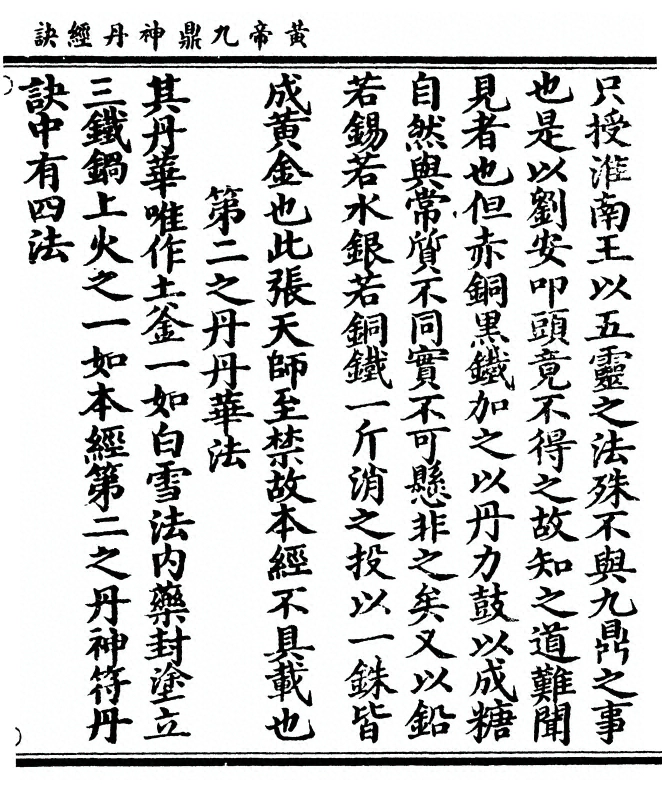 黃帝九鼎神丹經訣
只授淮南王以五靈之法殊不與九鼎之事
也是以劉安叩頭竟不得之故知之道難聞
見者也但赤銅黑鐵加之以丹力鼓以成糖
自然與常質不同實不可懸非之矣又以鉛
若錫若水銀若銅鐵一斤消之投以一銖皆
成黃金也此張天師至禁故本經不具載也
第二之丹丹華法
其丹華唯作土釜一如白雪法內藥封塗立
三鐵鍋上火之一如本經第二之丹神符丹
訣中有四法